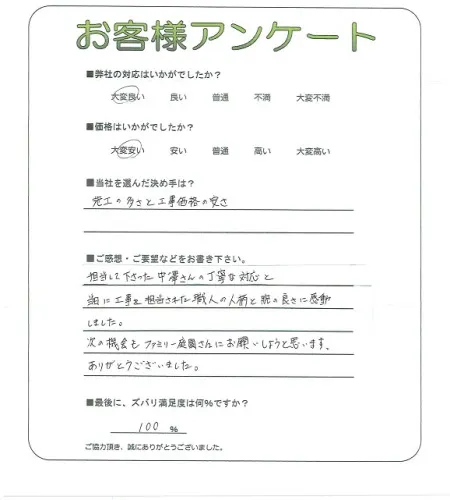 お客様アンケート
■弊社の対応はいかがでしたか?
大変良い 良い 普通 不満 大変不満
■価格はいかがでしたか?
大変安い 安い 普通 高い 大変高い
■当社を選んだ決め手は?
完工の多さと工事価格の安さ
■ご感想・ご要望などをお書き下さい。
担当して下さった中澤さんの丁寧な対応と
当に工事を担当された職人の人柄と腕の良さに感動
しました。
次の機会もファミリー庭園さんにお願いしようと思います。
ありがとうございました。
■最後に、ズバリ満足度は何%ですか?
100 %
ご協力頂き、誠にありがとうございました。